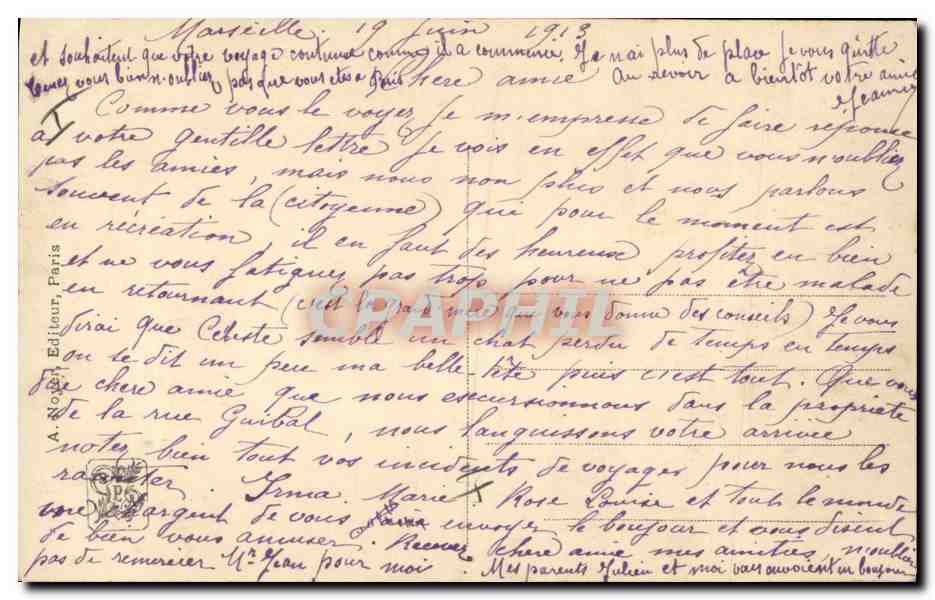 Marseille 19 Juin 1913
et souhaitent que votre voyage continue comme il a commencé. Je n'ai plus de place je vous quitte
vous n'oubliez pas que vous etes a Chere amie Au revoir a bientôt votre amie
Jeanne
Comme vous le voyez je m'empresse de faire réponse
a votre gentille lettre Je vois en effet que vous n'oubliez
pas les amies, mais nous non plus et nous parlons
souvent de la (citoyenne) qui pour le moment est
en récréation, il en faut des heureux profitez en bien
et ne vous fatiguez pas trop pour ne pas être malade
en retournant (c'est la grand mère qui vous donne des conseils) Je vous
dirai que Celeste semble un chat perdu de temps en temps
on se dit un peu ma belle-tête puis c'est tout. Que vous
dire chere amie que nous excursionnons dans la propriété
de la rue Guibal, nous languissons votre arrivée
notez bien tout vos incidents de voyages pour nous les
raconter Irma Marie Rose Louise et tout le monde
vous envoyer le bonjour et vous disent
de bien vous amuser. Recevez chere amie mes amitiés, n'oubliez
pas de remercier Mr Jean pour moi.
Mes parents Julien et moi vous envoient un bonjour
A. Noyer, Editeur, Paris
CPAPHIL